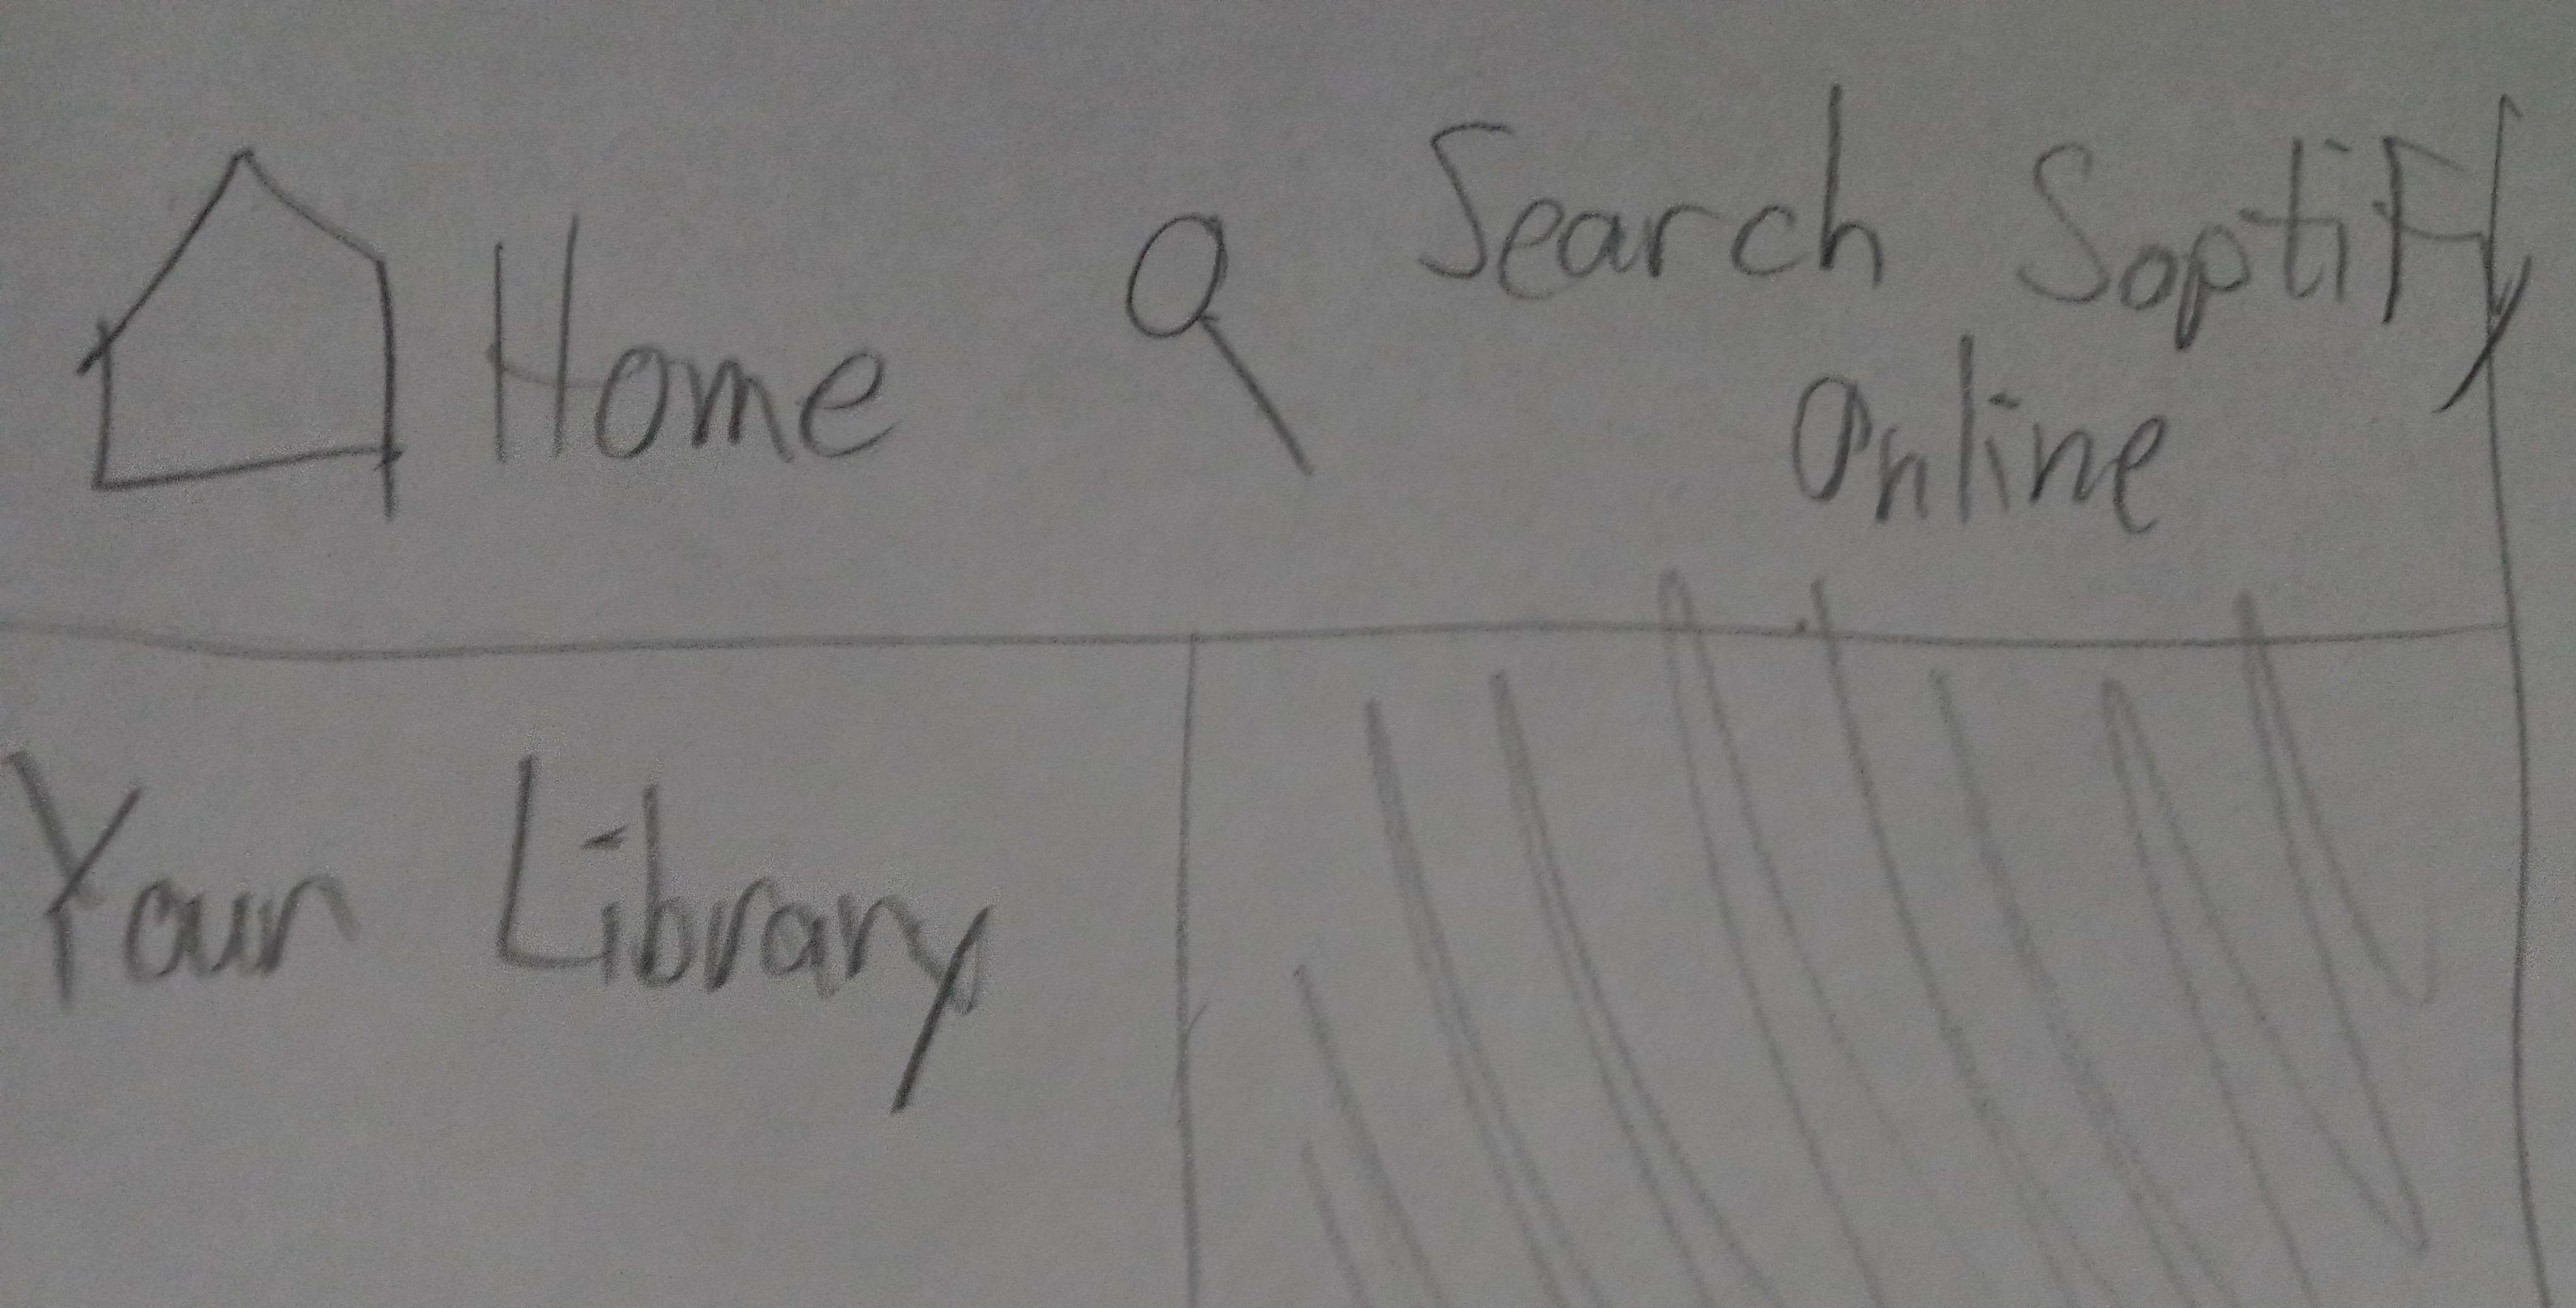 Home Search SoptiFy
Online
Your Library